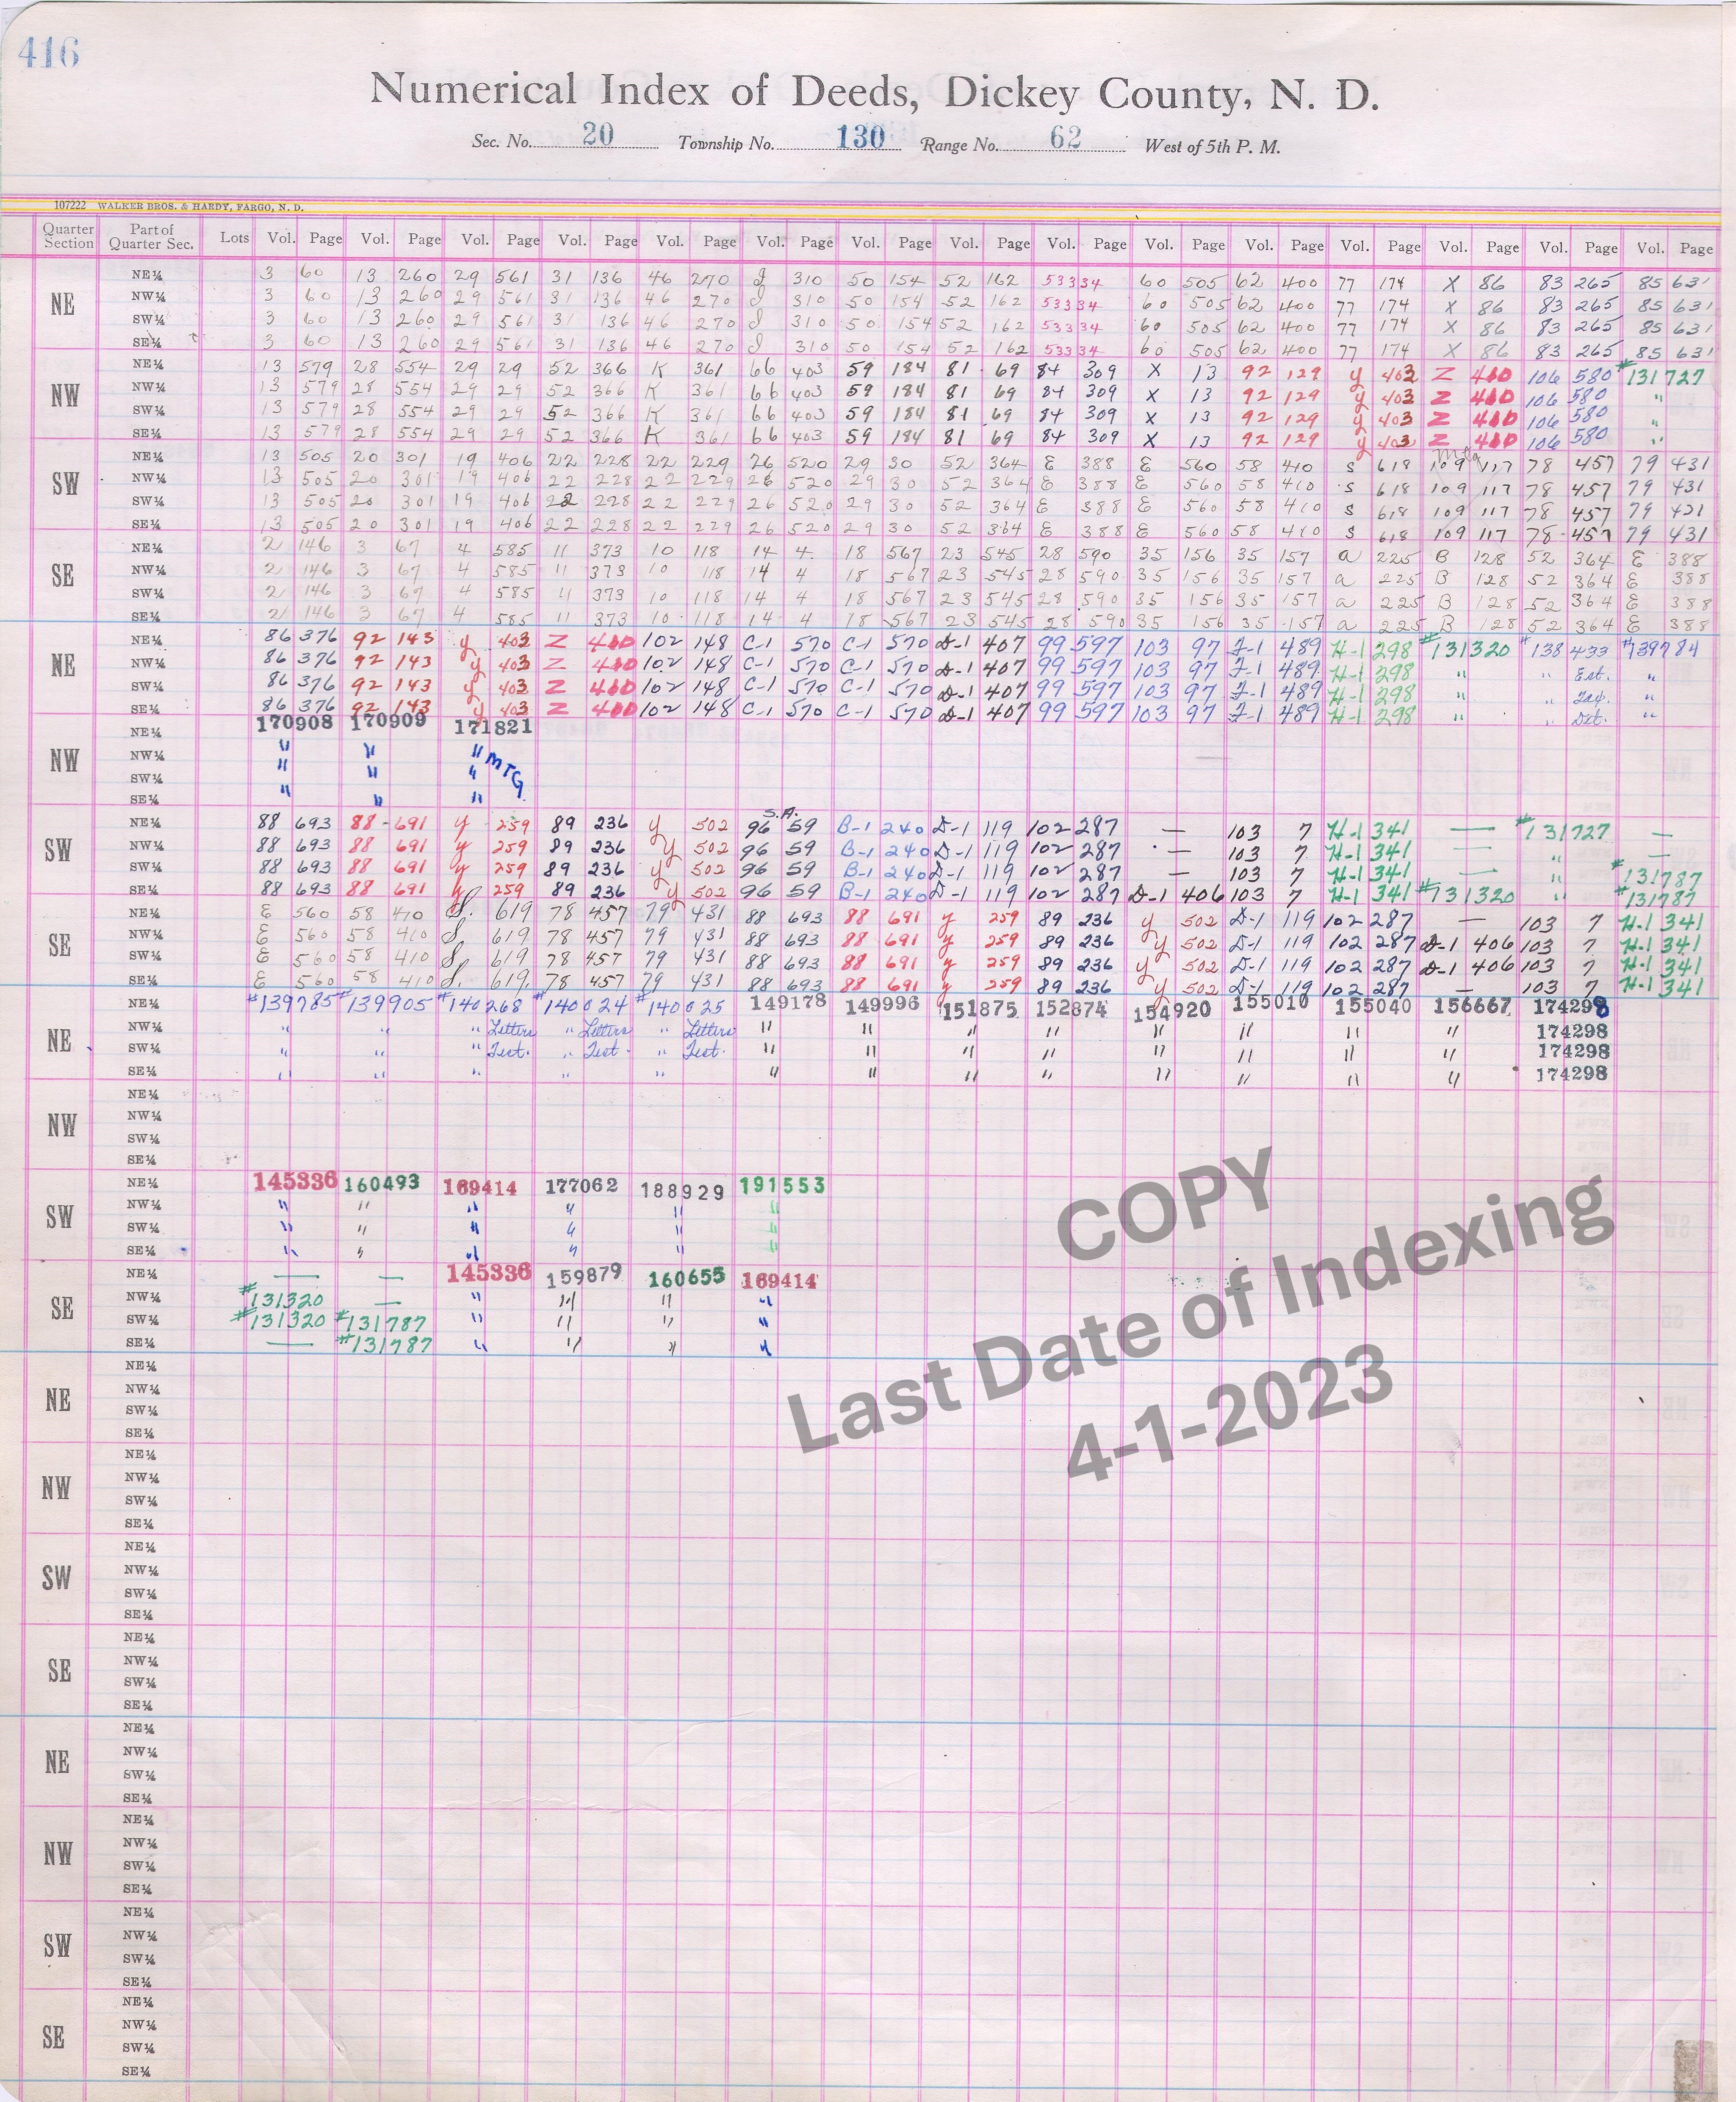 416
Numerical Index of Deeds, Dickey County, N. D.
Sec. No. 20 Township No. 130 Range No. 62 West of 5th P. M.
107222 WALKER BROS. & HARDY, FARGO, N. D.
Quarter Section Part of Quarter Sec. Lots Vol. Page Vol. Page Vol. Page Vol. Page Vol. Page Vol. Page Vol. Page Vol. Page Vol. Page Vol. Page Vol. Page Vol. Page Vol. Page Vol. Page Vol. Page
NE
NE¼ 3 60 13 260 29 561 31 136 46 270 J 310 50 154 52 162 53334 60 505 62 400 77 174 X 86 83 265 85 631
NW¼ 3 60 13 260 29 561 31 136 46 270 J 310 50 154 52 162 53334 60 505 62 400 77 174 X 86 83 265 85 631
SW¼ 3 60 13 260 29 561 31 136 46 270 J 310 50 154 52 162 53334 60 505 62 400 77 174 X 86 83 265 85 631
SE¼ 3 60 13 260 29 561 31 136 46 270 J 310 50 154 52 162 53334 60 505 62 400 77 174 X 86 83 265 85 631
NW
NE¼ 13 579 28 554 29 29 52 366 K 361 66 403 59 184 81 69 84 309 X 13 92 129 y 403 Z 410 106 580 #131727
NW¼ 13 579 28 554 29 29 52 366 K 361 66 403 59 184 81 69 84 309 X 13 92 129 y 403 Z 410 106 580 "
SW¼ 13 579 28 554 29 29 52 366 K 361 66 403 59 184 81 69 84 309 X 13 92 129 y 403 Z 410 106 580 "
SE¼ 13 579 28 554 29 29 52 366 K 361 66 403 59 184 81 69 84 309 X 13 92 129 y 403 Z 410 106 580 "
SW
Mtg
NE¼ 13 505 20 301 19 406 22 228 22 229 26 520 29 30 52 364 E 388 E 560 58 410 S 618 109 117 78 457 79 431
NW¼ 13 505 20 301 19 406 22 228 22 229 26 520 29 30 52 364 E 388 E 560 58 410 S 618 109 117 78 457 79 431
SW¼ 13 505 20 301 19 406 22 228 22 229 26 520 29 30 52 364 E 388 E 560 58 410 S 618 109 117 78 457 79 431
SE¼ 13 505 20 301 19 406 22 228 22 229 26 520 29 30 52 364 E 388 E 560 58 410 S 618 109 117 78 457 79 431
SE
NE¼ 2 146 3 67 4 585 11 373 10 118 14 4 18 567 23 545 28 590 35 156 35 157 a 225 B 128 52 364 E 388
NW¼ 2 146 3 67 4 585 11 373 10 118 14 4 18 567 23 545 28 590 35 156 35 157 a 225 B 128 52 364 E 388
SW¼ 2 146 3 67 4 585 11 373 10 118 14 4 18 567 23 545 28 590 35 156 35 157 a 225 B 128 52 364 E 388
SE¼ 2 146 3 67 4 585 11 373 10 118 14 4 18 567 23 545 28 590 35 156 35 157 a 225 B 128 52 364 E 388
NE
NE¼ 86 376 92 143 y 403 Z 410 102 148 C-1 570 C-1 570 D-1 407 99 597 103 97 F-1 489 H-1 298 #131320 #138433 #139784
NW¼ 86 376 92 143 y 403 Z 410 102 148 C-1 570 C-1 570 D-1 407 99 597 103 97 F-1 489 H-1 298 " " Est. "
SW¼ 86 376 92 143 y 403 Z 410 102 148 C-1 570 C-1 570 D-1 407 99 597 103 97 F-1 489 H-1 298 " " Tax. "
SE¼ 86 376 92 143 y 403 Z 410 102 148 C-1 570 C-1 570 D-1 407 99 597 103 97 F-1 489 H-1 298 " " Det. "
NW
NE¼ 170908 170909 171821
NW¼ " " " MTG
SW¼ " " "
SE¼ " " "
SW
S.A.
NE¼ 88 693 88 691 y 259 89 236 y 502 96 59 B-1 240 D-1 119 102 287 — 103 7 H-1 341 — #131727 —
NW¼ 88 693 88 691 y 259 89 236 y 502 96 59 B-1 240 D-1 119 102 287 — 103 7 H-1 341 — " —
SW¼ 88 693 88 691 y 259 89 236 y 502 96 59 B-1 240 D-1 119 102 287 — 103 7 H-1 341 — " #131787
SE¼ 88 693 88 691 y 259 89 236 y 502 96 59 B-1 240 D-1 119 102 287 D-1 406 103 7 H-1 341 #131320 " #131787
SE
NE¼ E 560 58 410 S. 619 78 457 79 431 88 693 88 691 y 259 89 236 y 502 D-1 119 102 287 — 103 7 H-1 341
NW¼ E 560 58 410 S. 619 78 457 79 431 88 693 88 691 y 259 89 236 y 502 D-1 119 102 287 D-1 406 103 7 H-1 341
SW¼ E 560 58 410 S. 619 78 457 79 431 88 693 88 691 y 259 89 236 y 502 D-1 119 102 287 D-1 406 103 7 H-1 341
SE¼ E 560 58 410 S. 619 78 457 79 431 88 693 88 691 y 259 89 236 y 502 D-1 119 102 287 — 103 7 H-1 341
NE
NE¼ #139785 #139905 #140268 #140024 #140025 149178 149996 151875 152874 154920 155010 155040 156667 174298
NW¼ " " " Letters " Letters " Letters " " " " " " " " 174298
SW¼ " " " Test. " Test. " Test. " " " " " " " " 174298
SE¼ " " " " " " " " " " " " " 174298
NW
NE¼
NW¼
SW¼
SE¼
SW
NE¼ 145336 160493 169414 177062 188929 191553
NW¼ " " " " " "
SW¼ " " " " " "
SE¼ " " " " " "
SE
NE¼ — — 145336 159879 160655 169414
NW¼ #131320 — " " " "
SW¼ #131320 #131787 " " " "
SE¼ — #131787 " " " "
COPY
Last Date of Indexing
4-1-2023
NE
NE¼
NW¼
SW¼
SE¼
NW
NE¼
NW¼
SW¼
SE¼
SW
NE¼
NW¼
SW¼
SE¼
SE
NE¼
NW¼
SW¼
SE¼
NE
NE¼
NW¼
SW¼
SE¼
NW
NE¼
NW¼
SW¼
SE¼
SW
NE¼
NW¼
SW¼
SE¼
SE
NE¼
NW¼
SW¼
SE¼